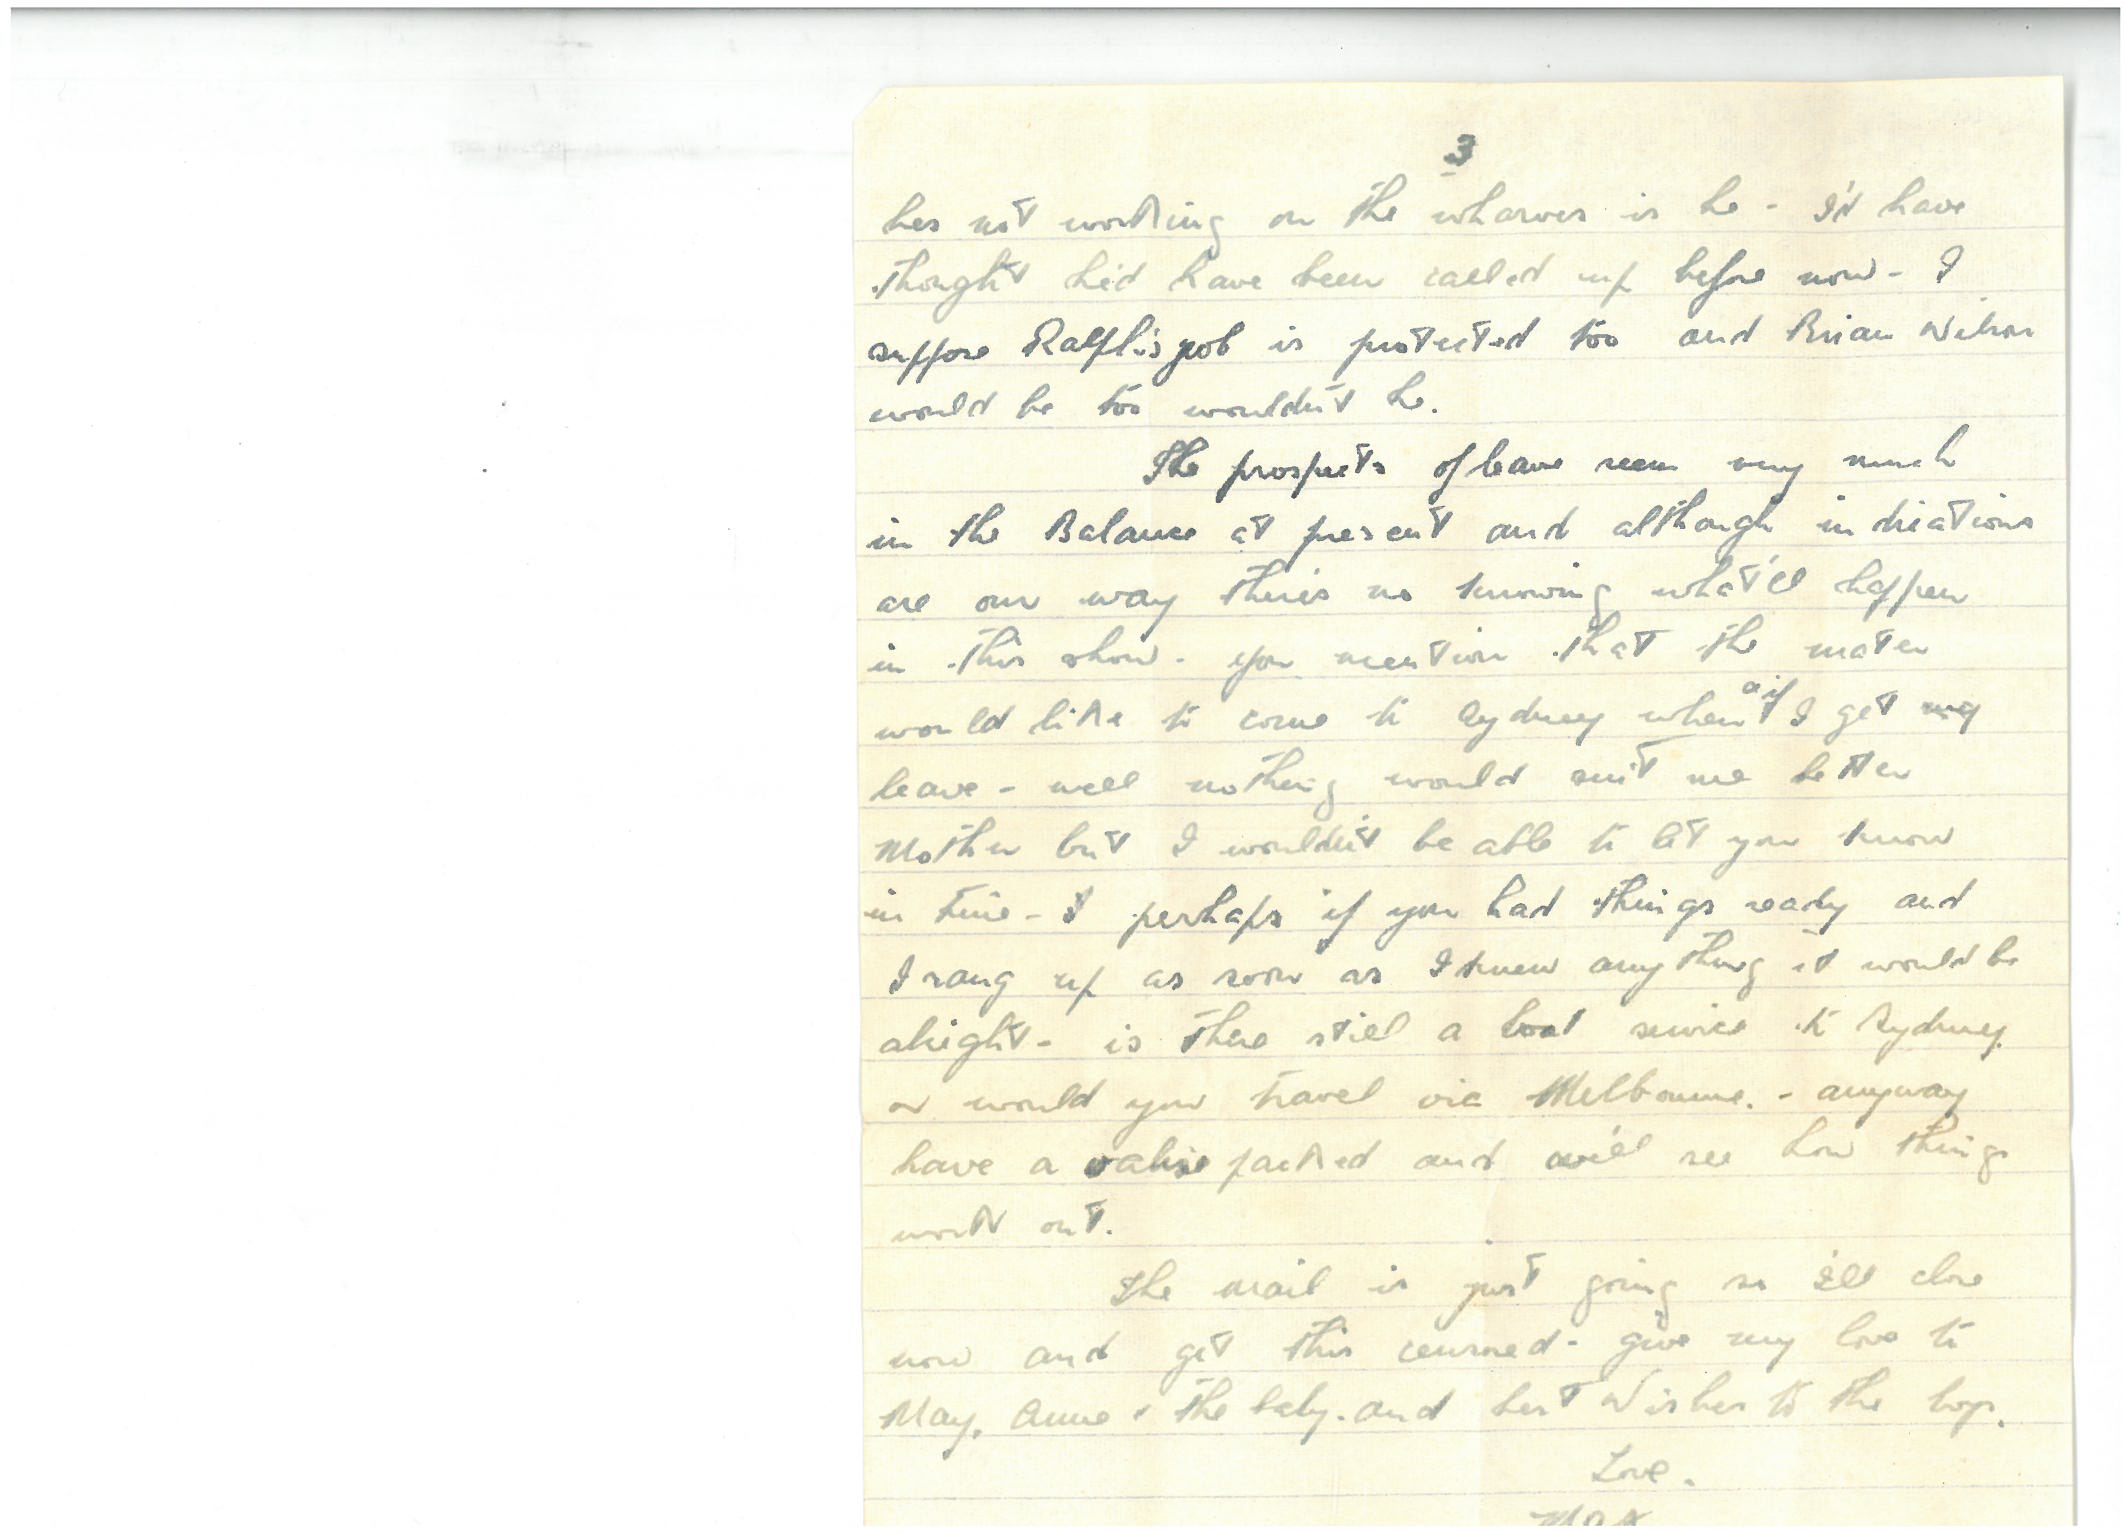 3
hes not working on the wharves is he - I'd have
thought he'd have been called up before now - I
suppose Ralph's job is protected too and Brian Wilson
would be too wouldn't he.
The prospects of leave seem very much
in the Balance at present and although indications
are our way there's no knowing what'll happen
in this show - you mention that the mater
would like to come to Sydney when or if I get my
leave - well nothing would suit me better
Mother but I wouldn't be able to let you know
in time - perhaps if you had things ready and
I rang up as soon as I knew anything it would be
alright - is there still a boat service to Sydney
or would you travel via Melbourne. - anyway
have a valise packed and we'll see how things
work out.
The mail is just going so I'll close
now and get this censored - give my love to
May, Anne & the baby. and best Wishes to the boys.
Love.
Max